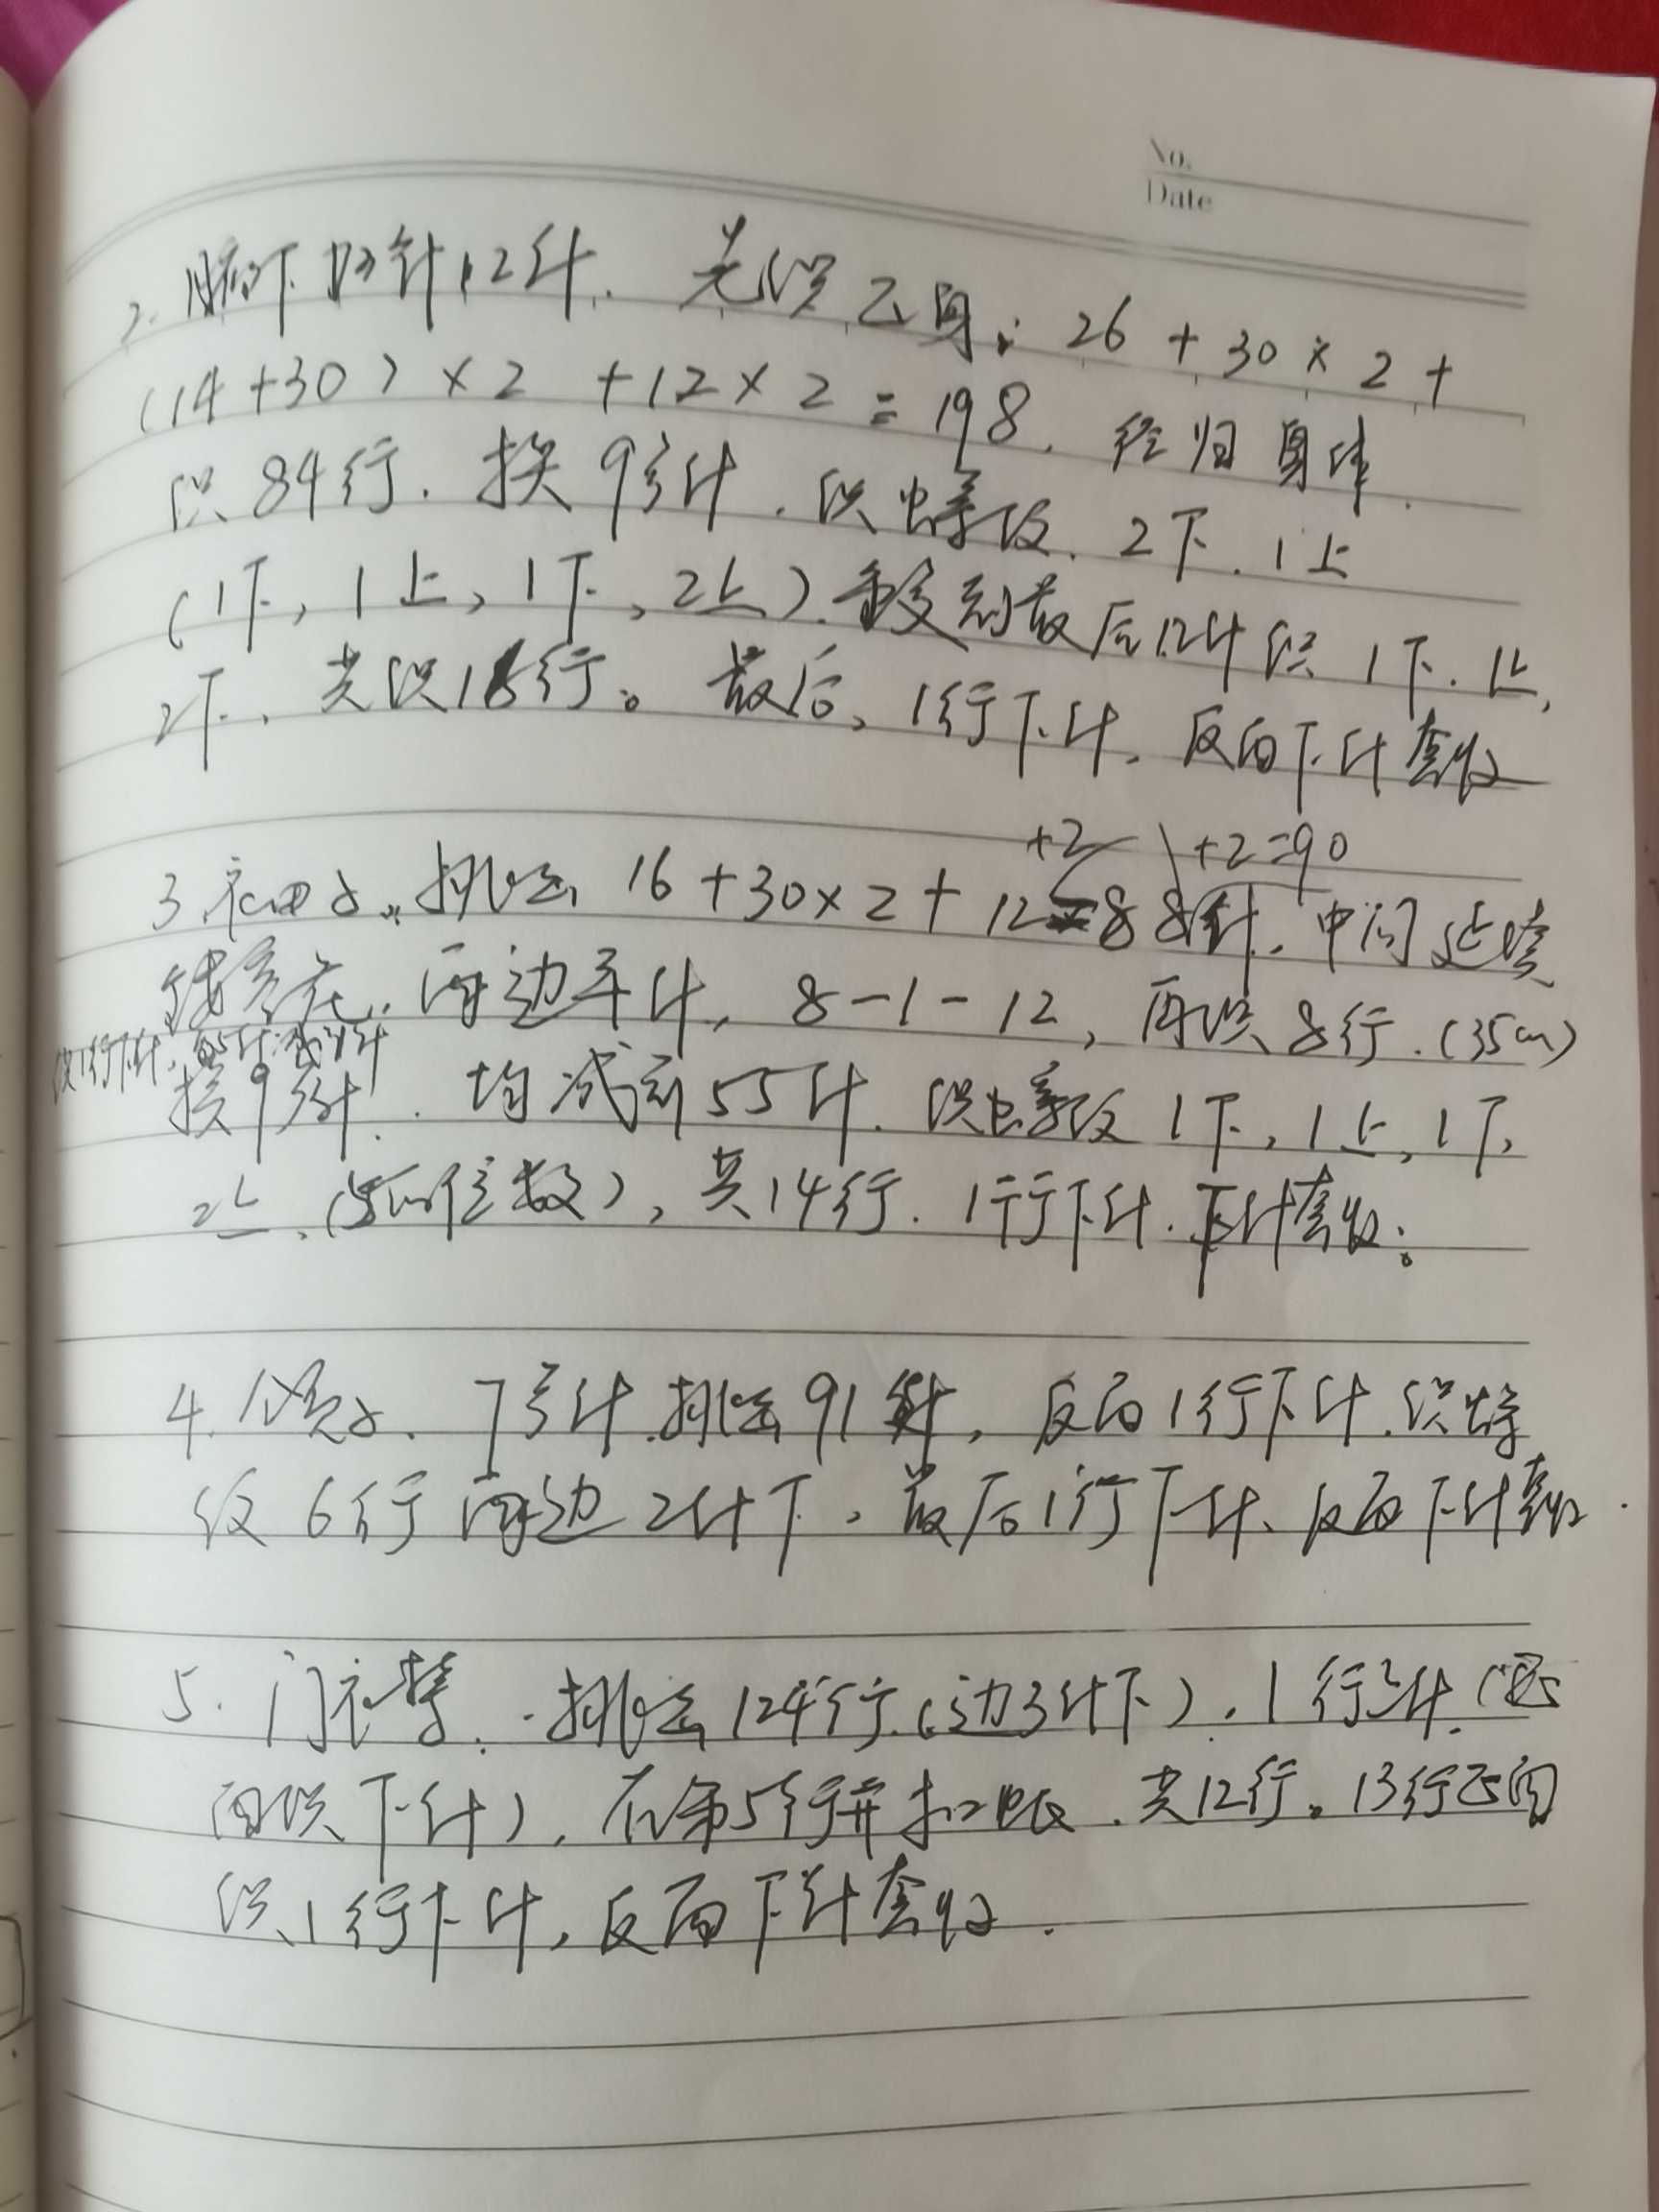 No.
Date
2. 腋下加针12针. 先织正身: 26 + 30 × 2 +
(14+30) × 2 + 12 × 2 = 198. 往返身体.
织84行. 换9号针. 织螺纹. 2下. 1上
(1下, 1上, 1下, 2上). 重复到最后12针织 1下. 1上,
2下. 共织18行。最后, 1行下针. 反面下针套收
+2 +2=90
3. 袖子. 挑出 16+30×2+12=88针. 中间延续
花. 两边平针, 8-1-12, 再织8行. (35cm)
织1行下针,
换9号针. 均减到55针. 织螺纹 1下, 1上, 1下,
2上. (5的倍数), 共14行. 1行下针. 下针套收。
4. 领子. 7号针. 挑出91针, 反面1行下针. 织螺
纹 6行 两边2针下. 最后1行下针. 反面下针套收.
5. 门襟. 挑出124行. (边3针下). 1行下针. (正
面织下针). 在第5行开扣眼. 共12行。13行正面
织1行下针, 反面下针套收.